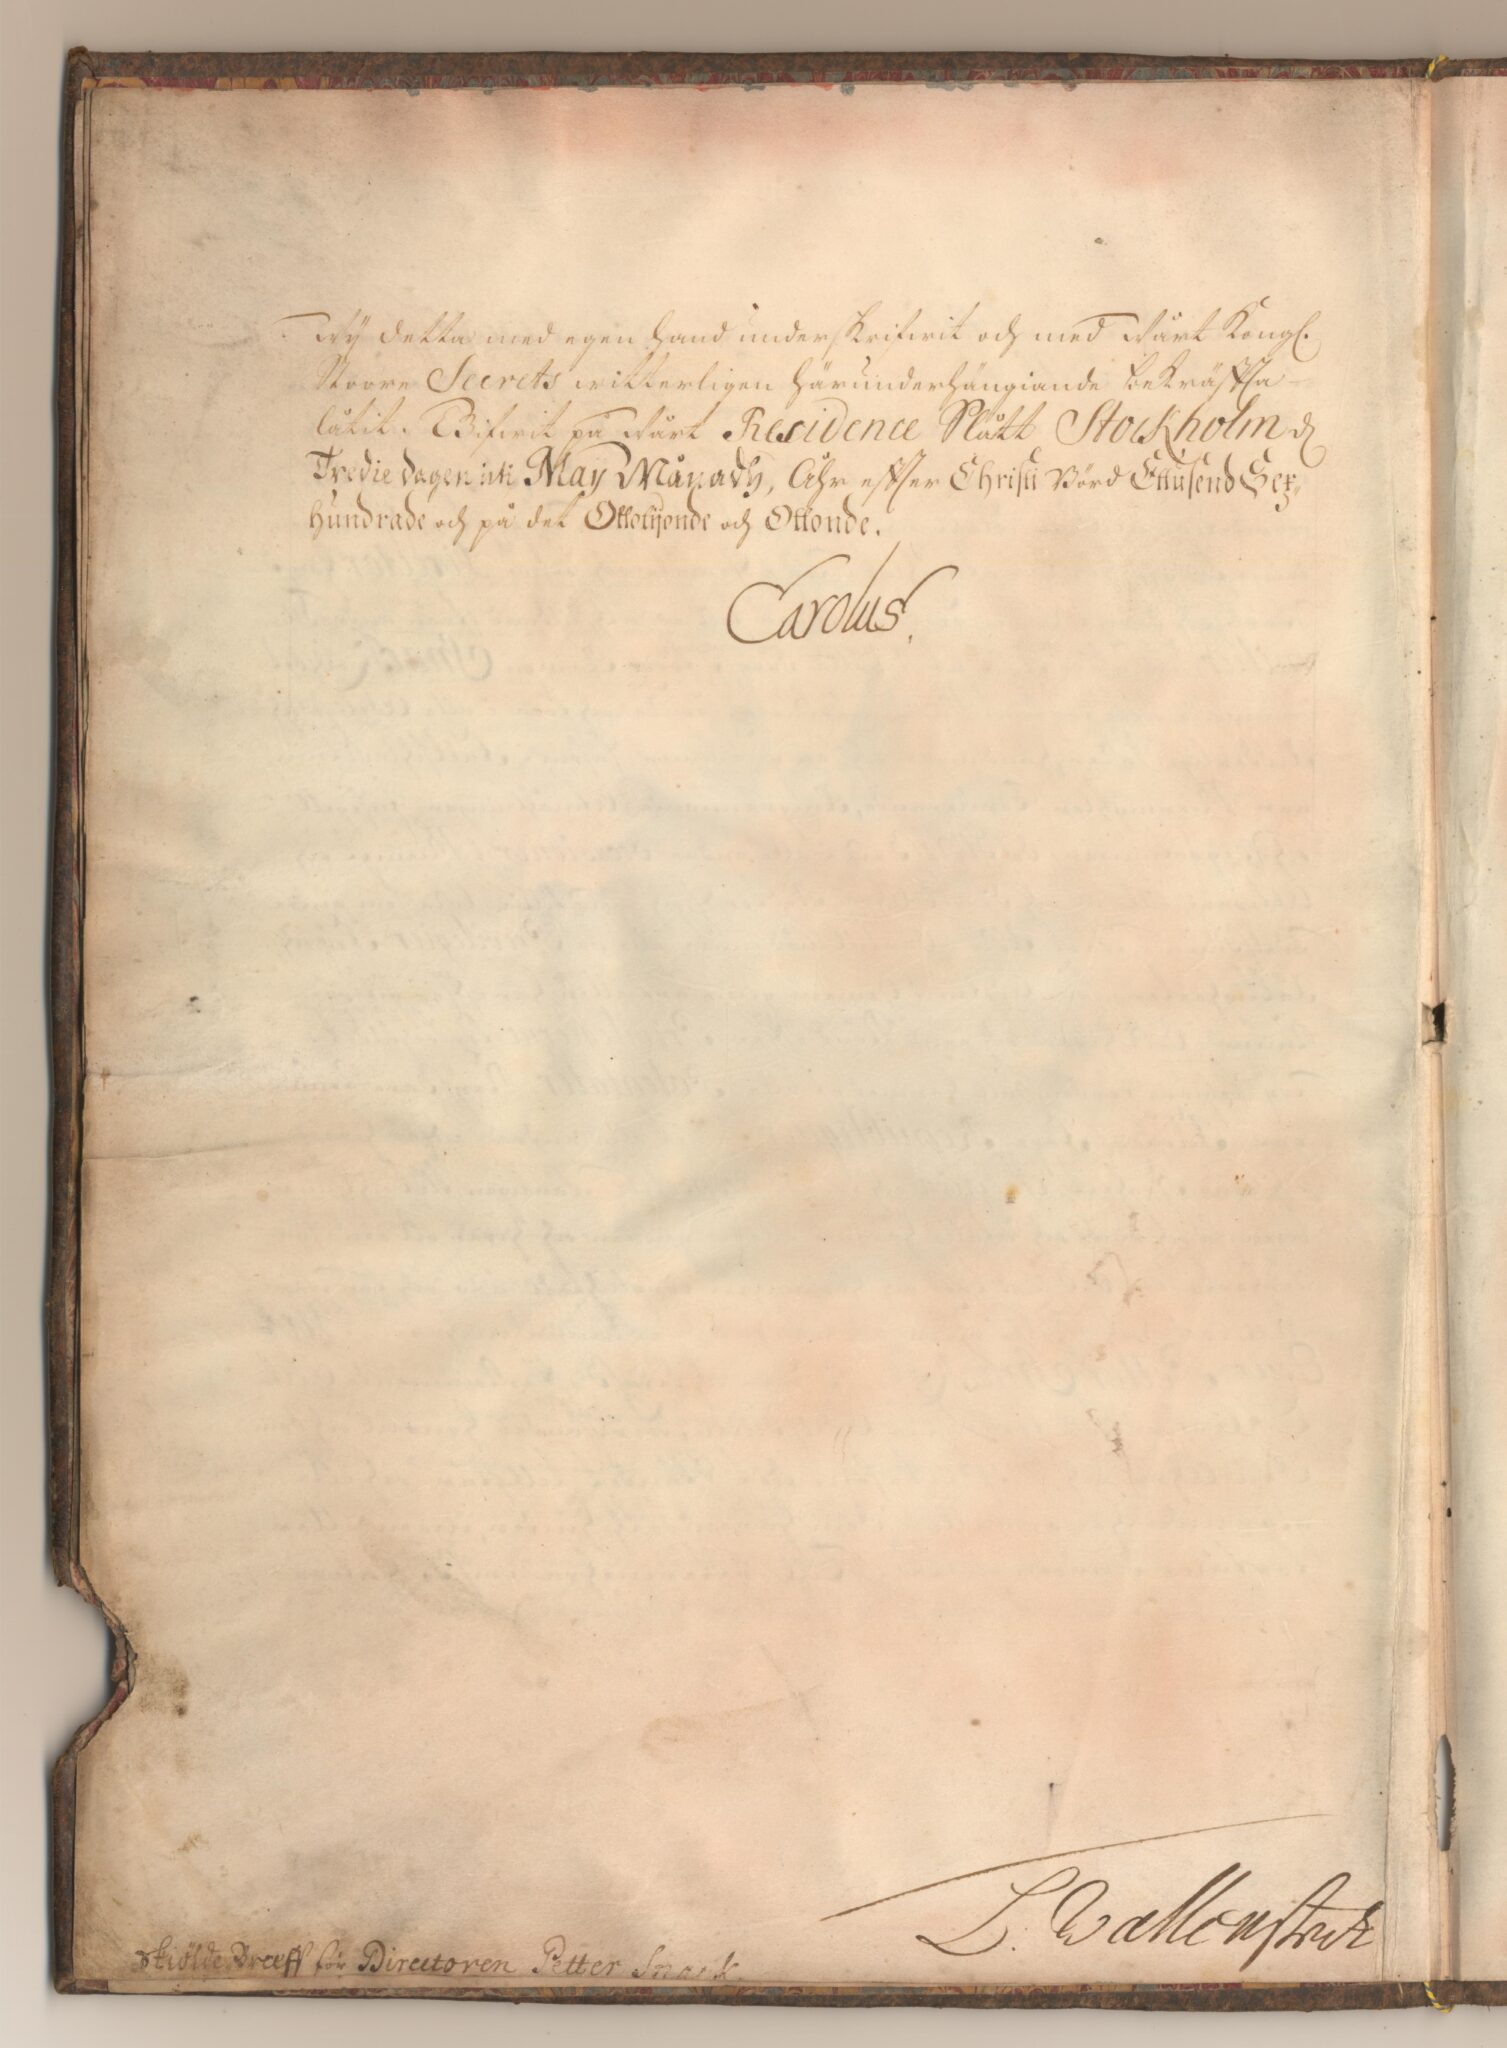 Wÿ detta med egen hand underskrifwit och med Wårt Kongl.
Stoore Secrets witterligen härunderhängiande bekräffta
låtit. Gifwit på Wårt Residence Slått Stockholm d
Tredie dagen uti Maÿ Månadh, Åhr effter Christi Börd Ettusend Sex
Hundrade och på det Ottotijonde och Ottonde.
Carolus.
L. Wallenstedt
Skiölde Breeff för Directoren Petter Snack.